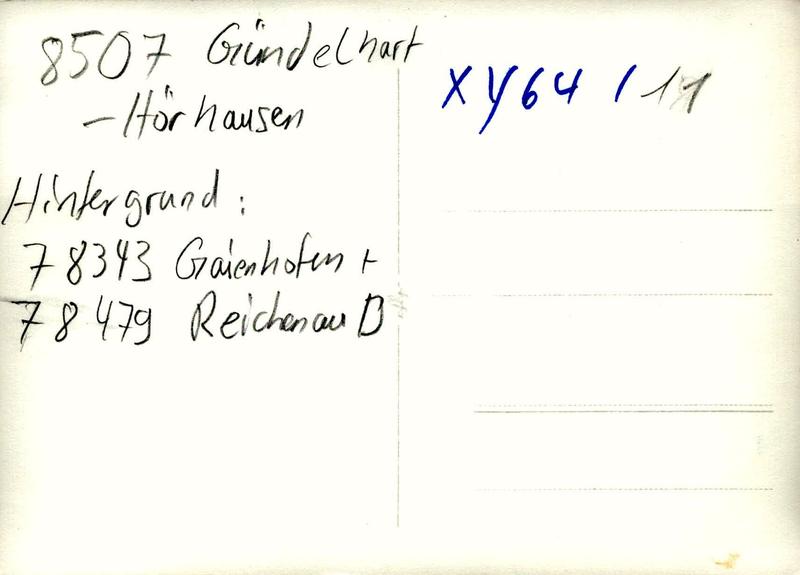 8507 Gündelhart
- Hörhausen
Hintergrund:
78343 Gaienhofen +
78479 Reichenau D
XY64 / 11